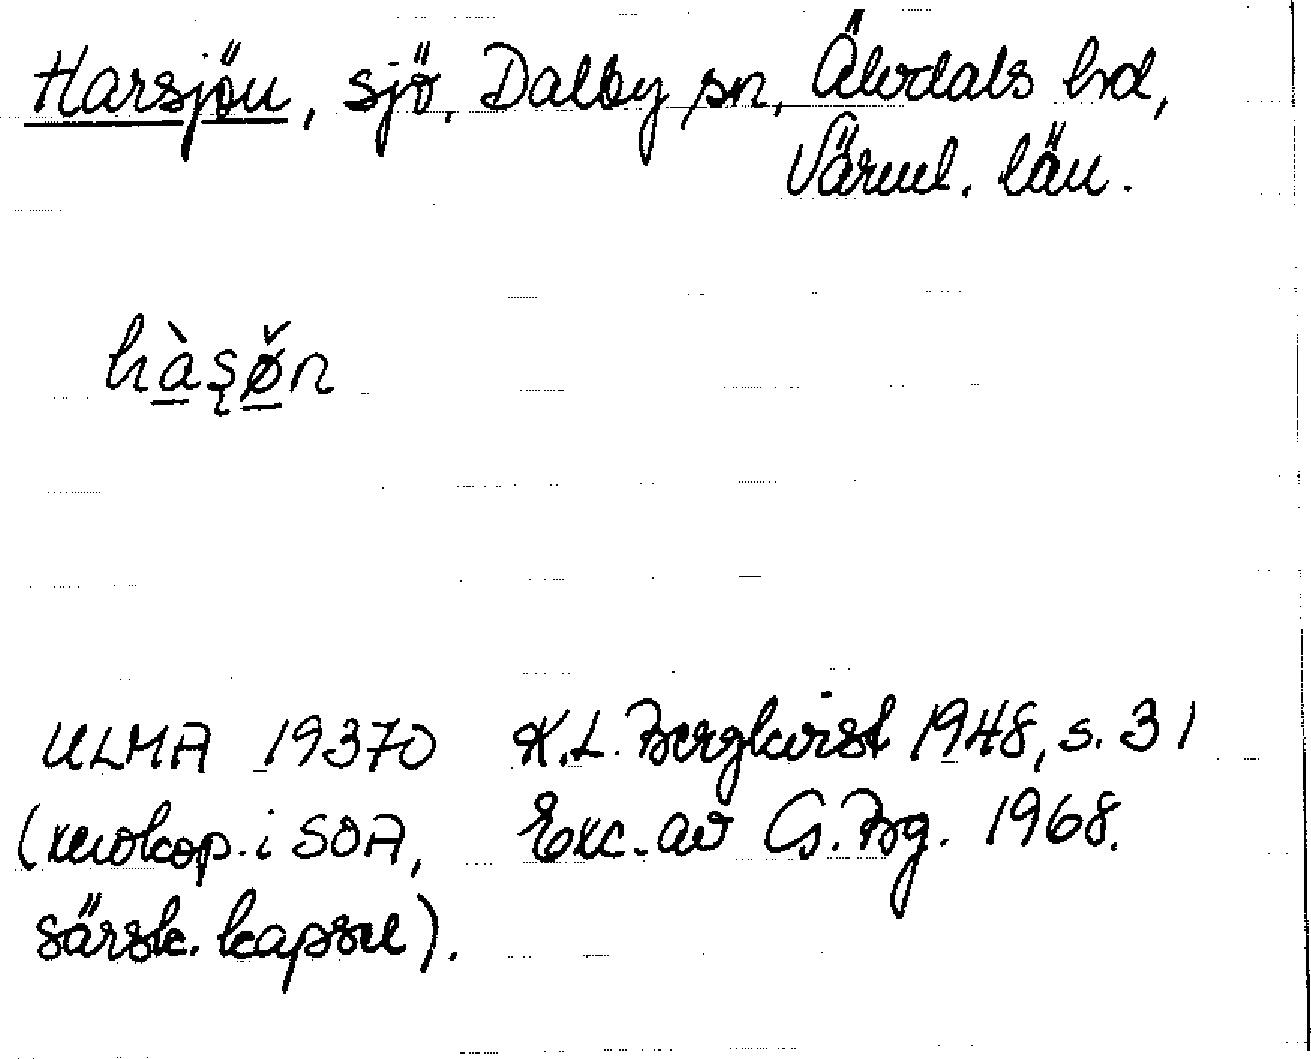 Harsjön, sjö, Dalby sn, Älvdals hd,
Värml. län.
hàşø̌n
ULMA 19370 K.L. Bergkvist 1948, s. 31
(xerokop. i SOA, Exc. av G. Bg. 1968.
särsk. kapsel).